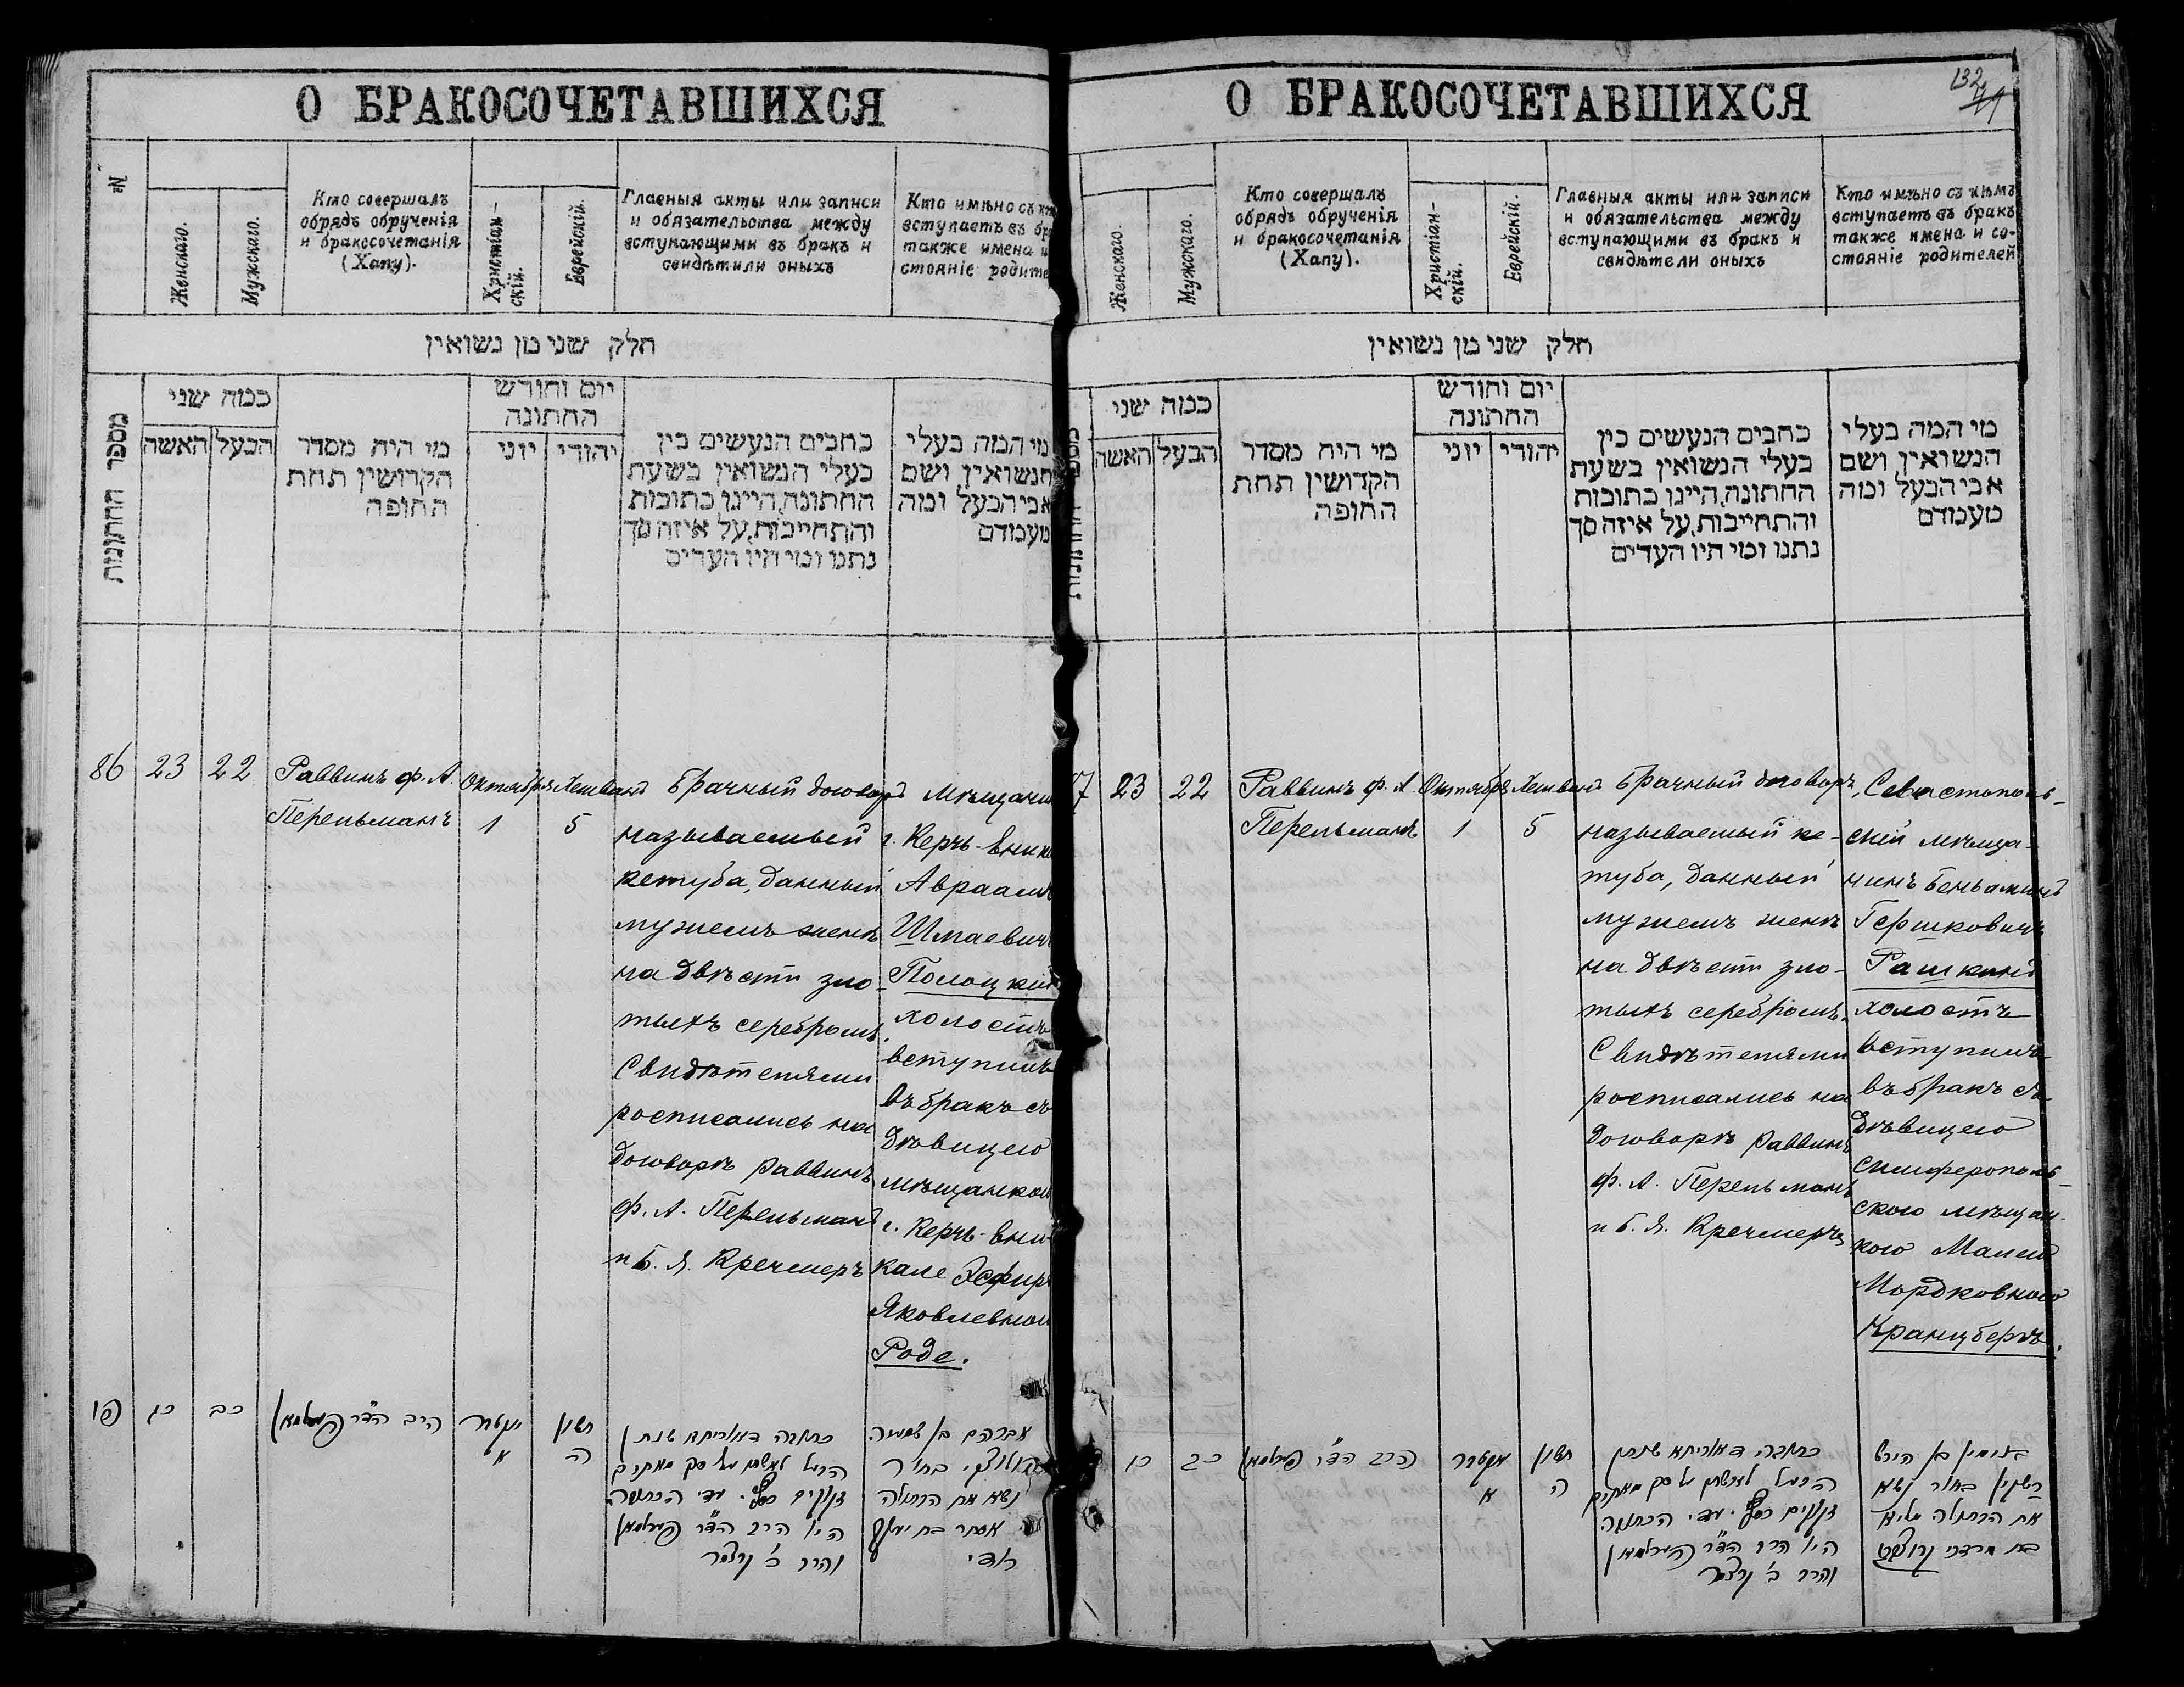 О БРАКОСОЧЕТАВШИХСЯ
№
Женскаго.
Мужскаго.
Кто совершалъ
обрядъ обрученія
и бракосочетанія
(Хапу).
Христіан-
скій.
Еврейскій.
Главныя акты или записи
и обязательства между
вступающими въ бракъ и
свидѣтили оныхъ
Кто имѣно съ
вступаетъ въ
также имена
стояніе
חלק שני מן נשואין
מספר החתונות
כמה שני
האשה
הבעל
מי היה מסדר
הקדושין תחת
החופה
יום וחודש
החתונה
יוני
יהודי
כתבים הנעשים בין
בעלי הנשואין בשעת
החתונה, היינו כתובות
והתחייבות, על איזה סך
נתנו ומי היו העדים
מי המה בעלי
הנשואין ושם
אבי הבעל ומה
מעמדם
86
23
22
Раввинъ Ф. А.
Перельманъ
Октября
1
Хешванъ
5
Брачный договоръ
называемый
кетуба, данный
мужемъ женѣ
на двѣсти зло-
тыхъ серебромъ.
Свидѣтелями
росписались на
договорѣ раввинъ
Ф. А. Перельманъ
и Б. Я. Кречмеръ
Мѣщанинъ
г. Керчь-Ени
Авраамъ
Шмаевичъ
Полоцкій
холостъ
вступилъ
въ бракъ съ
дѣвицею
мѣщанкою
г. Керчь-Ени-
кале Эсфирь
Яковлевною
Роде.
פו
כג
כב
הרב הד״ר פערלמאן
אקטבר
א
חשון
ה
כתובה דאוריתא שנתן
הבעל לאשתו על סך מאתים
זקוקים כסף. עדי הכתובה
היו הרב הד״ר פערלמאן
והרר ב׳ קרצמר
אברהם בן שמעיה
פולוצקי בחור
נשא את הבתולה
אסתר בת יעקב
ראדי
О БРАКОСОЧЕТАВШИХСЯ
132
Женскаго.
Мужскаго.
Кто совершалъ
обрядъ обрученія
и бракосочетанія
(Хапу).
Христіан-
скій.
Еврейскій.
Главныя акты или записи
и обязательства между
вступающими въ бракъ и
свидѣтели оныхъ
Кто имѣно съ нѣмъ
вступаетъ въ бракъ
также имена и со-
стояніе родителей
חלק שני מן נשואין
כמה שני
האשה
הבעל
מי היה מסדר
הקדושין תחת
החופה
יום וחודש
החתונה
יוני
יהודי
כתבים הנעשים בין
בעלי הנשואין בשעת
החתונה, היינו כתובות
והתחייבות, על איזה סך
נתנו ומי היו העדים
מי המה בעלי
הנשואין ושם
אבי הבעל ומה
מעמדם
7
23
22
Раввинъ Ф. А.
Перельманъ
Октября
1
Хешванъ
5
Брачный договоръ,
называемый ке-
туба, данный
мужемъ женѣ
на двѣсти зло-
тыхъ серебромъ.
Свидѣтелями
росписались на
договорѣ раввинъ
Ф. А. Перельманъ
и Б. Я. Кречмеръ
Севастополь-
скій мѣща-
нинъ Беньаминъ
Гершковичъ
Рашкинъ
холостъ
вступилъ
въ бракъ съ
дѣвицею
симферополь-
скою мѣщан-
кою Маліею
Мордковною
Кранцбергъ.
כג
כב
הרב הד״ר פערלמאן
אקטבר
א
חשון
ה
כתובה דאוריתא שנתן
הבעל לאשתו על סך מאתים
זקוקים כסף. עדי הכתובה
היו הרב הד״ר פערלמאן
והרר ב׳ קרצמר
בנימין בן הירש
רשקין בחור נשא
את הבתולה מליא
בת מרדכי